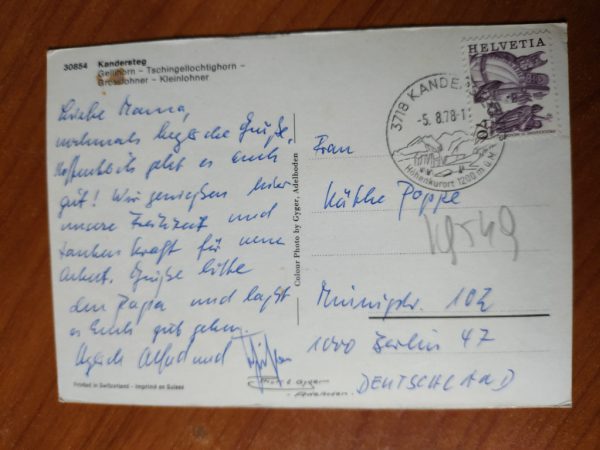 30854 Kandersteg
Gellihorn – Tschingellochtighorn –
Grosslohner – Kleinlohner
Liebe Mama,
nochmals liebe Grüße,
Hoffentlich geht es Euch
gut! Wir genießen hier
unsere Freizeit und
tanken Kraft für neue
Arbeit. Grüße bitte
den Papa und laßt
es Euch gut gehen.
Alfred und
Printed in Switzerland - Imprimé en Suisse
Colour Photo by Gyger, Adelboden
HELVETIA
40
3718 KANDE
-5. 8.78-1
Höhenkurort 1200 m ü.M.
Frau
Käthe Poppe
102
1000 Berlin 47
DEUTSCHLAND